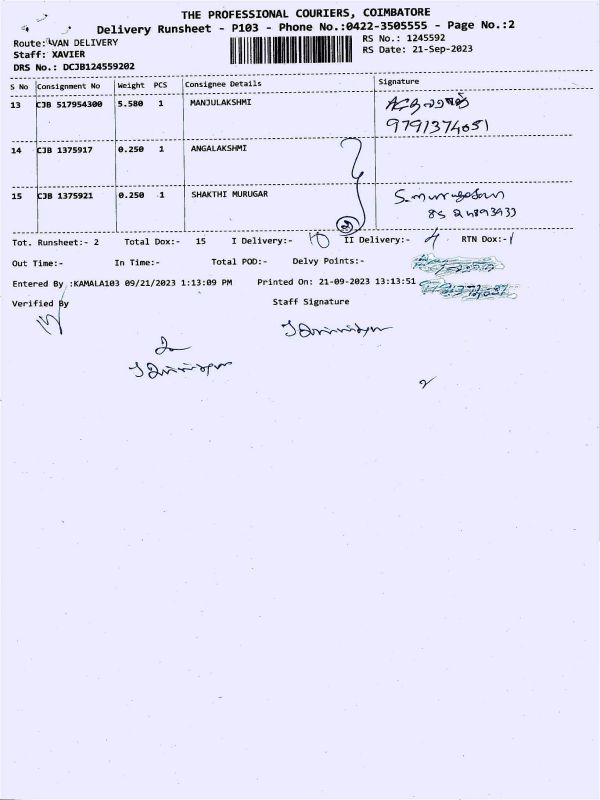 THE PROFESSIONAL COURIERS, COIMBATORE
Delivery Runsheet - P103 - Phone No.:0422-3505555 - Page No.:2
Route: VAN DELIVERY
RS No.: 1245592
Staff: XAVIER
RS Date: 21-Sep-2023
DRS No.: DCJB124559202
S No Consignment No Weight PCS Consignee Details Signature
13 CJB 517954300 5.580 1 MANJULAKSHMI
9791374051
14 CJB 1375917 0.250 1 ANGALAKSHMI
15 CJB 1375921 0.250 1 SHAKTHI MURUGAR
2
Tot. Runsheet:- 2 Total Dox:- 15 I Delivery:- 10 II Delivery:- 4 RTN Dox:- 1
Out Time:- In Time:- Total POD:- Delvy Points:-
Entered By :KAMALA103 09/21/2023 1:13:09 PM Printed On: 21-09-2023 13:13:51
Verified By Staff Signature